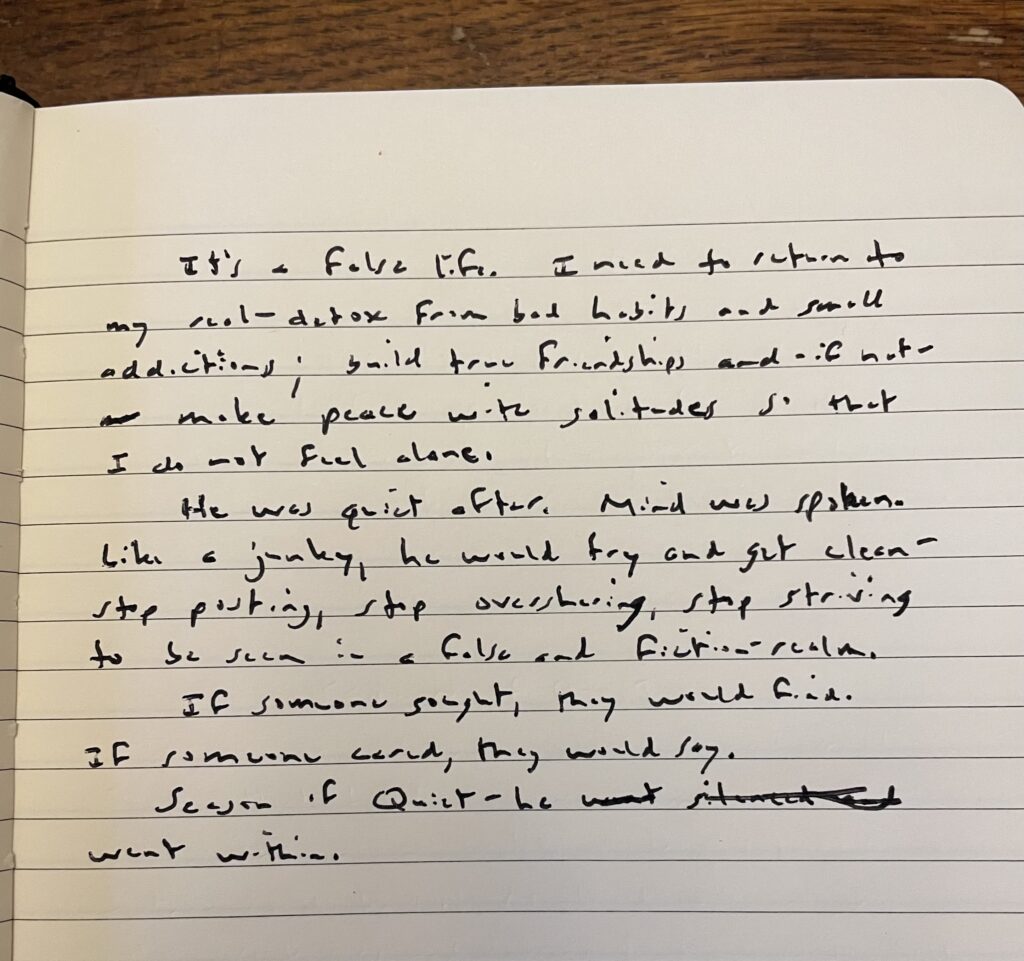 It's a false life. I need to return to
my real-detox from bad habits and small
addictions; build true friendships and -if not-
make peace with solitudes so that
I do not feel alone.
He was quiet after. Mind was spoken.
Like a junky, he would try and get clean-
stop posting, stop oversharing, stop striving
to be seen in a false and fiction-realm.
If someone sought, they would find.
If someone cared, they would say.
Season of Quiet-he went silenced and
went within.